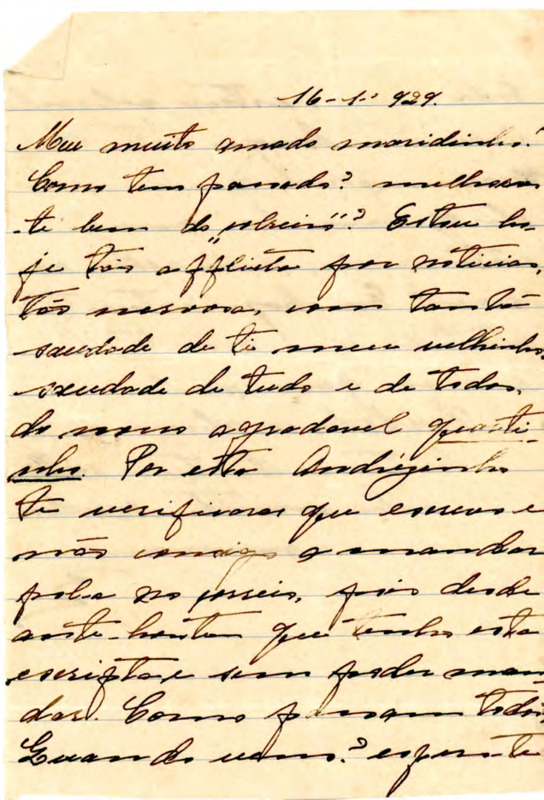 16-1º 929.
Meu muito amado maridinho!
Como tens passado? melhoras
-te bem do "olreiro"? Estou ho-
je tão afflicta por noticias,
tão nervosa, com tanta
saudade de ti meu velhinho,
saudade de tudo e de todos,
do nosso agradavel quarti-
nho. Por esta Andrézinho
tu verificaras que escrevo e
não consigo a mandar
pol-a no correio, pois desde
ante-hontem que tenho esta
escripta e sem poder man-
dar. Como passam todos,
Quando vens? espero-te